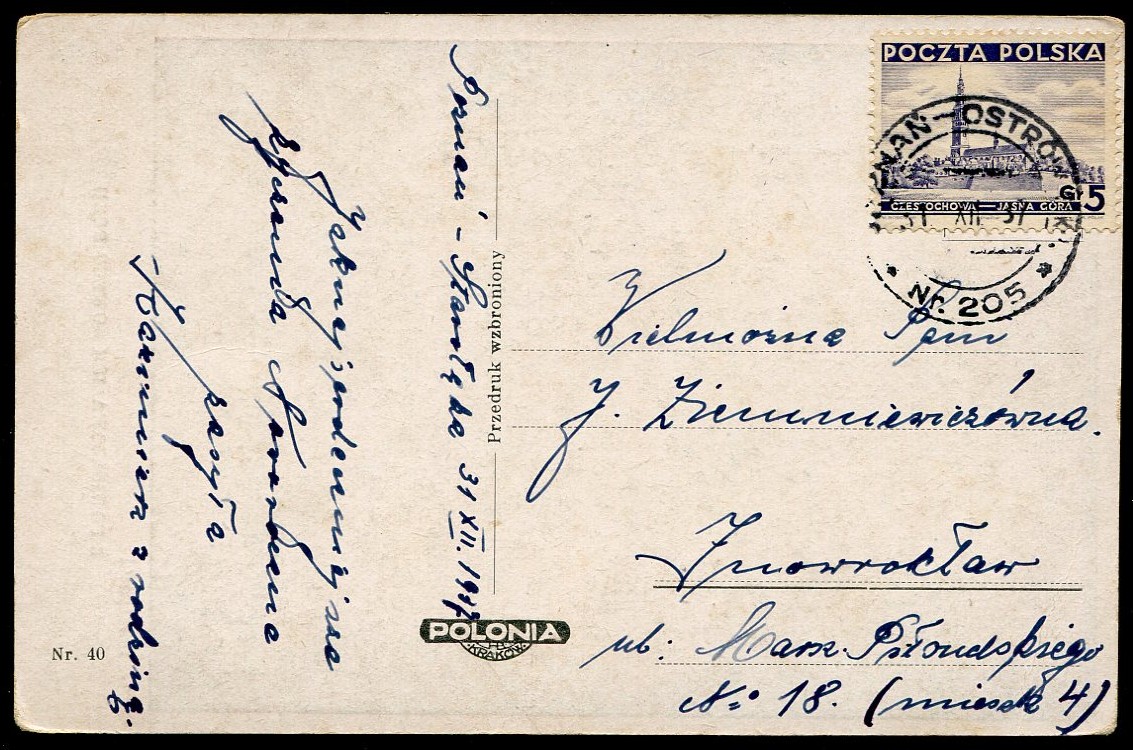 Poznań - Starołęka 31 XII. 1937
Jaknajserdeczniejsze
życzenia Noworoczne
zasyła
Kazimierz z rodziną.
Przedruk wzbroniony
POLONIA
KRAKÓW
Nr. 40
POCZTA POLSKA
CZĘSTOCHOWA — JASNA GÓRA
Gr 5
POZNAŃ — OSTRÓW
31 XII 37
* Nr. 205 *
Wielmożna Pani
J. Ziemniewiczówna.
Inowrocław
ul. Marsz. Piłsudskiego
No 18. (mieszk 4)